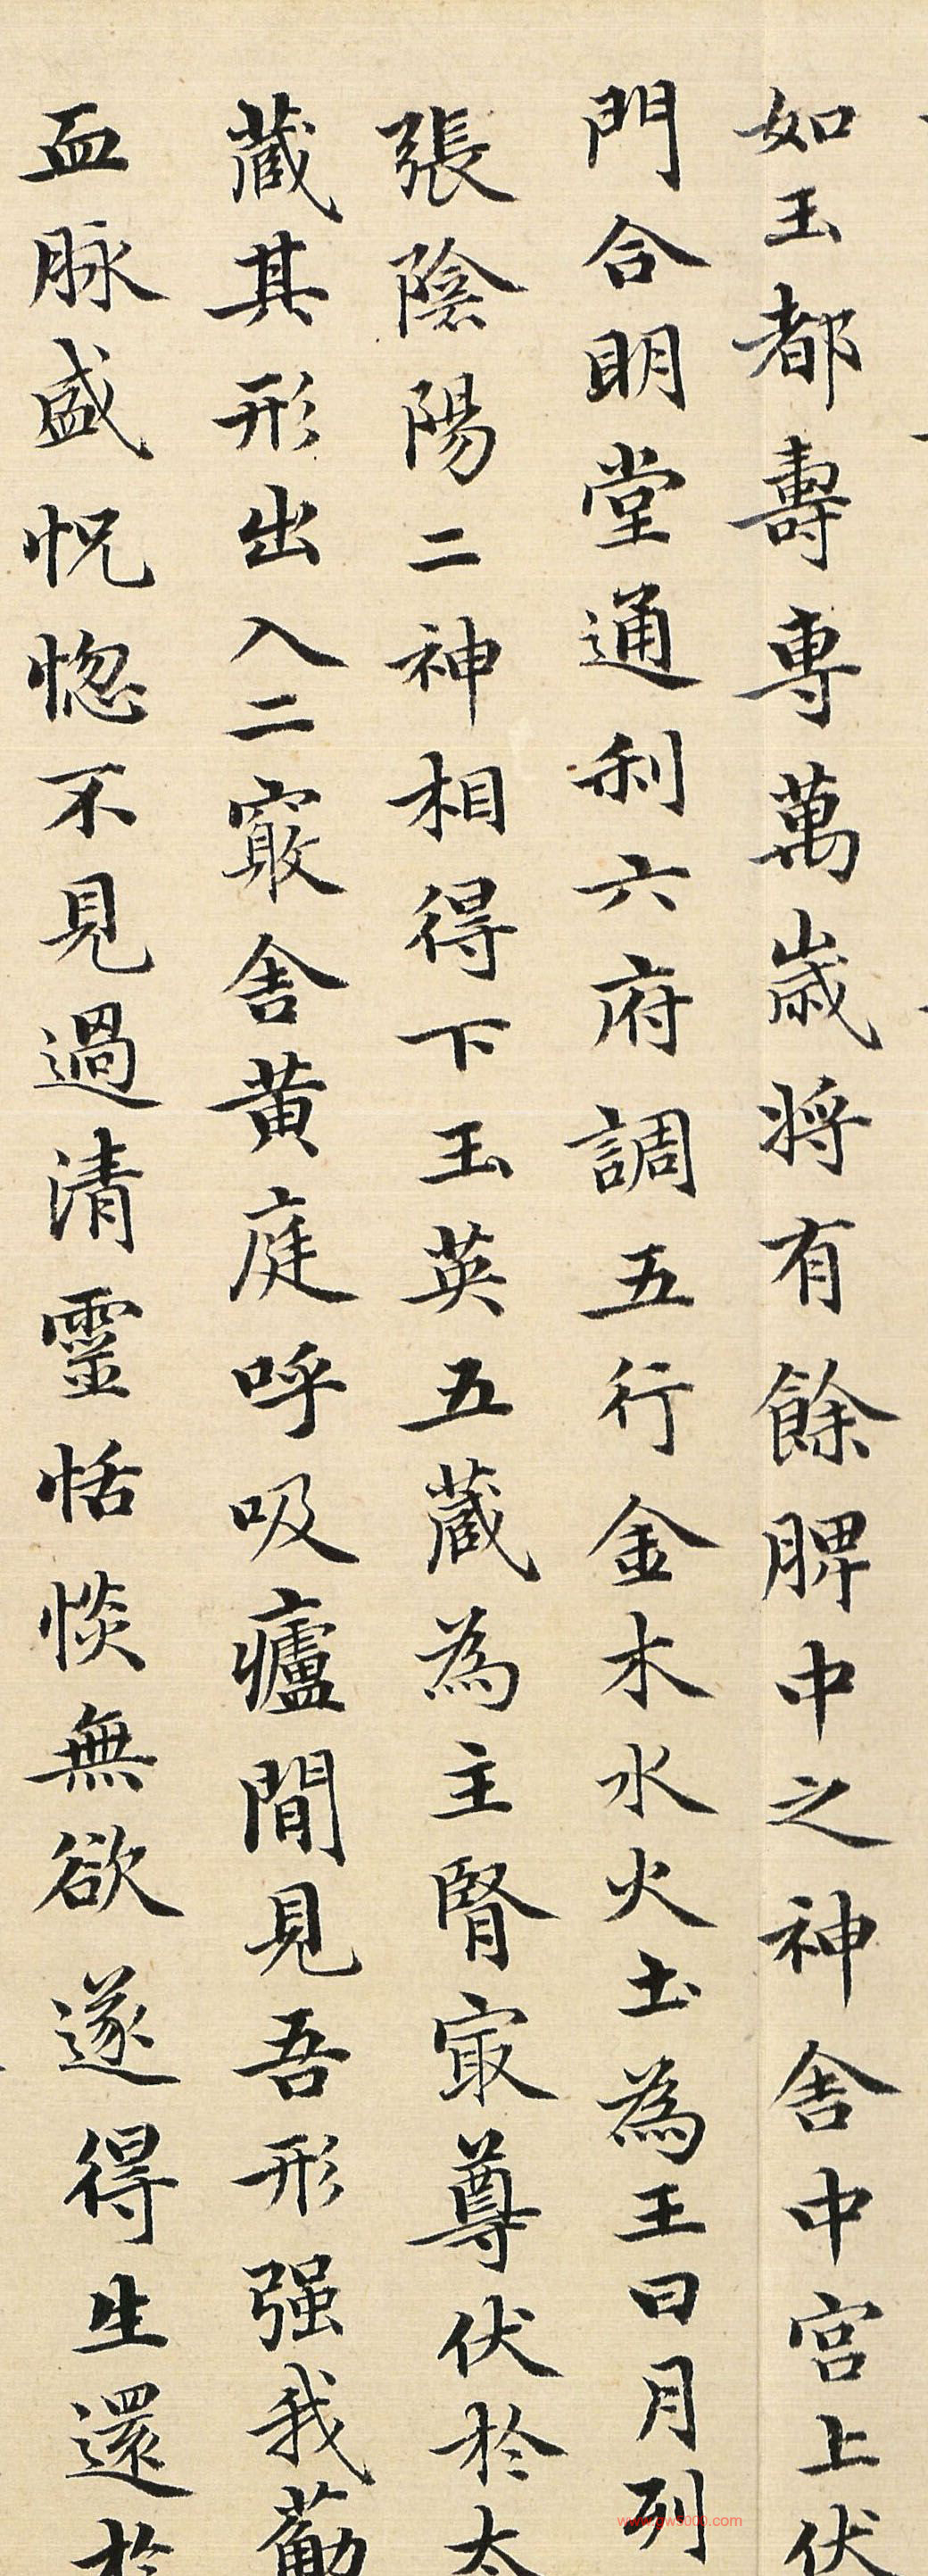 如玉都壽專萬歲将有餘脾中之神舍中宮上伏
門合明堂通利六府調五行金木水火土為王日月列
張陰陽二神相得下玉英五蔵為主腎㝡尊伏於太
蔵其形出入二竅舍黄庭呼吸廬間見吾形强我葡
血脉盛怳惚不見過清靈恬惔無欲遂得生還於
www.gw5000.com